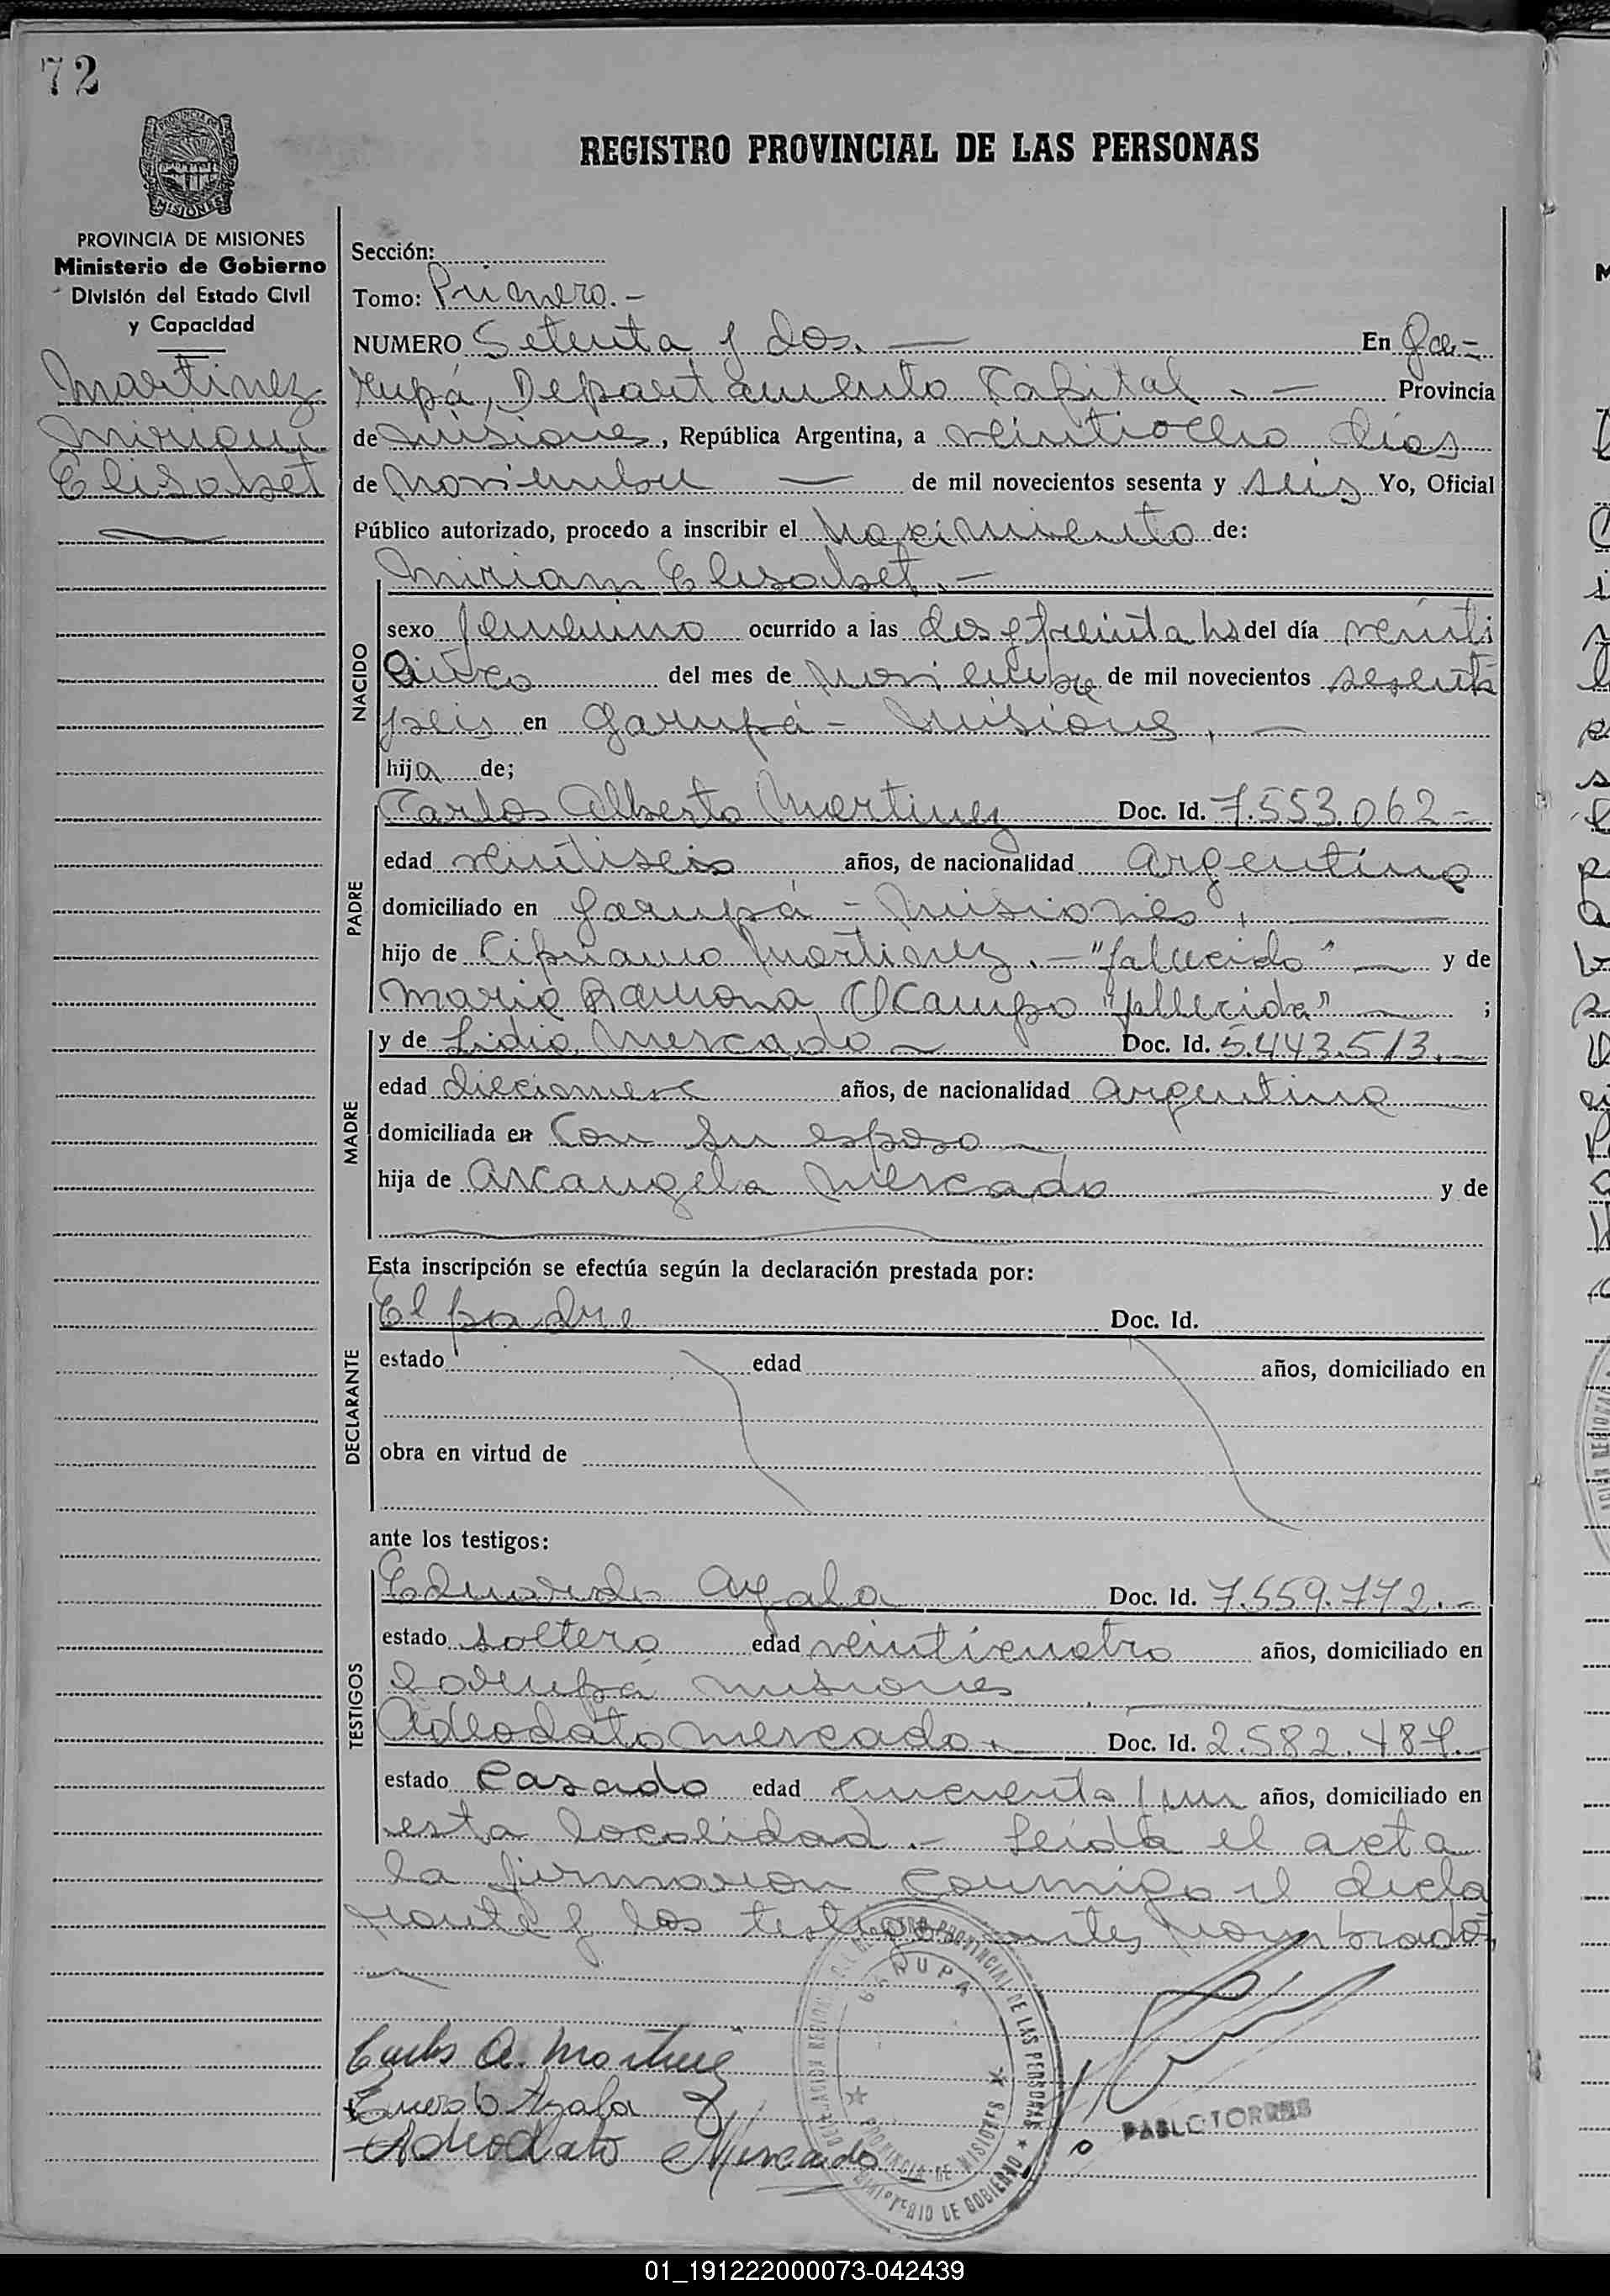 72
PROVINCIA DE
MISIONES
REGISTRO PROVINCIAL DE LAS PERSONAS
PROVINCIA DE MISIONES
Ministerio de Gobierno
División del Estado Civil
y Capacidad
Martinez
Miriam
Elisabet
Sección:
Tomo: Primero.-
NUMERO Setenta y dos. — En Ga-
rupá, Departamento Capital. — Provincia
de Misiones, República Argentina, a veintiocho días
de Noviembre — de mil novecientos sesenta y seis Yo, Oficial
Público autorizado, procedo a inscribir el Nacimiento de:
NACIDO
Miriam Elisabet.-
sexo femenino ocurrido a las dos y treinta hs del día veinti
cinco del mes de Noviembre de mil novecientos sesenta
seis en Garupá - Misiones. —
hija de;
PADRE
Carlos Alberto Martinez Doc. Id. 7.553.062-
edad veintiseis años, de nacionalidad argentino
domiciliado en Garupá - Misiones. —
hijo de Cipriano Martinez.- "fallecido" — y de
Maria Ramona Ocampo "fallecida" — ;
MADRE
y de Lidia Mercado Doc. Id. 5.443.513.-
edad diecinueve años, de nacionalidad argentina
domiciliada en Con su esposo
hija de Arcangela Mercado — y de
Esta inscripción se efectúa según la declaración prestada por:
DECLARANTE
El padre Doc. Id.
estado edad años, domiciliado en
obra en virtud de
ante los testigos:
TESTIGOS
Eduardo Ayala Doc. Id. 7.559.772.-
estado soltero edad veinticuatro años, domiciliado en
Garupá Misiones
Adeodato Mercado. Doc. Id. 2.582.487.-
estado Casado edad cincuenta y un años, domiciliado en
esta localidad.- Leída el acta
la firmaron conmigo el decla
rante y los testigos antes nombrados,
Carlos A. Martinez
Ayala
Adeodato Mercado
REGISTRO PROVINCIAL DE LAS PERSONAS
GARUPA
PROVINCIA DE MISIONES
MINISTERIO DE GOBIERNO
PABLO TORRES
01_191222000073-042439